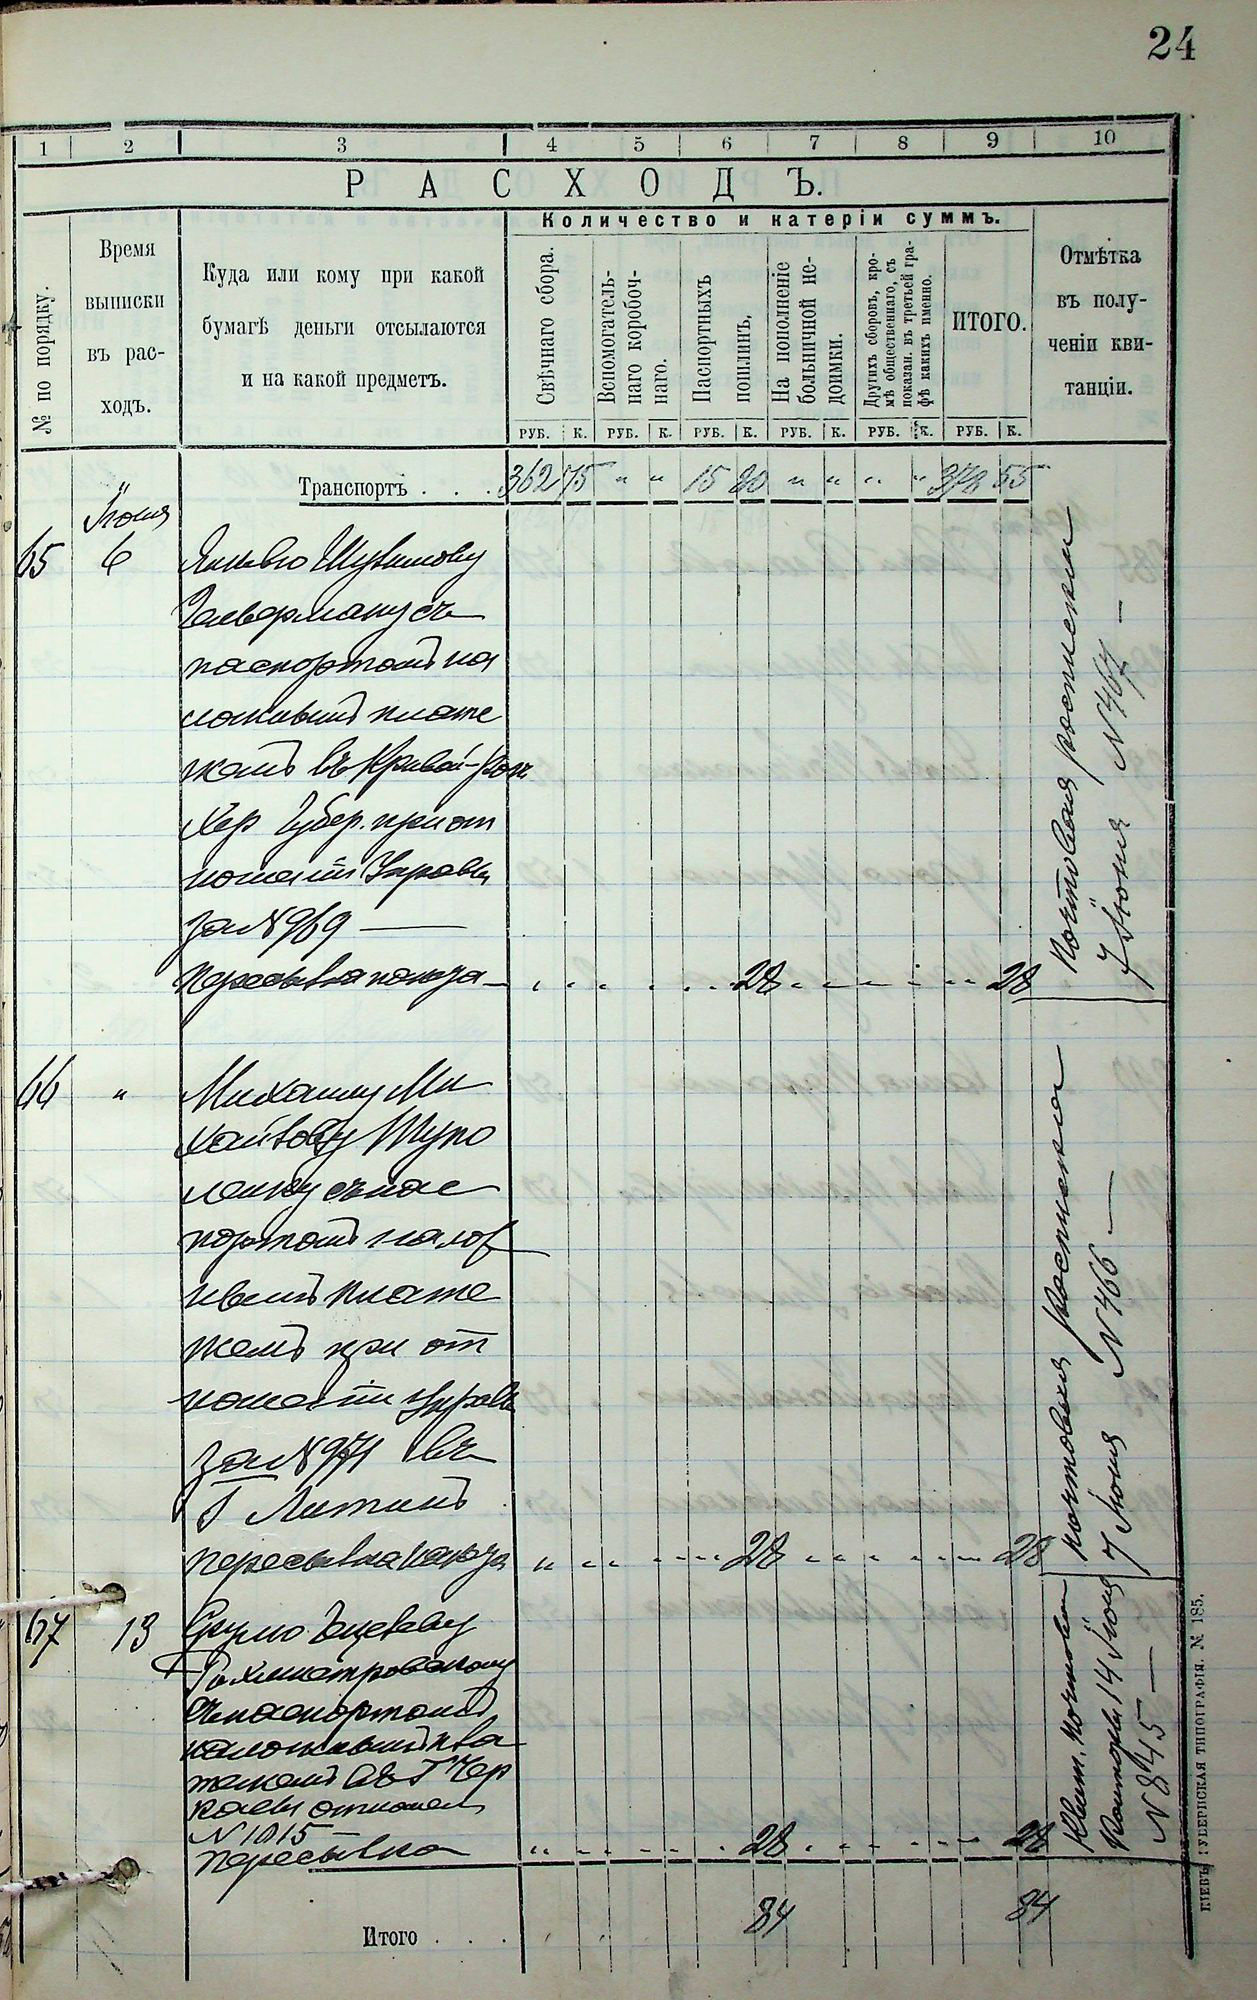 24
1 2 3 4 5 6 7 8 9 10
РАСХОДЪ.
№ по порядку.
Время
выписки
въ рас-
ходъ.
Куда или кому при какой
бумагѣ деньги отсылаются
и на какой предметъ.
Количество и катеріи суммъ.
Свѣчнаго сбора.
Вспомогатель-
наго коробоч-
наго.
Паспортныхъ
пошлинъ.
На пополненіе
больничной не-
доимки.
Другихъ сборовъ, кро-
мѣ общественнаго, съ
показан. въ третьей гра-
фѣ какихъ именно.
ИТОГО.
Отмѣтка
въ полу-
ченіи кви-
танціи.
РУБ. К. РУБ. К. РУБ. К. РУБ. К. РУБ. К. РУБ. К.
Транспортъ . . . 362 75 " " 15 80 " " " " 378 55
Іюня
65 6
Гальперману съ
паспортомъ на
ложнымъ плате
жемъ въ Кривой-Рогъ
Хер Губер. при от
ношеніи Управы
за № 969 —
Пересылка конца — 28 28
Почтовая росписка
7 Іюня № 467 —
66 " Михаилу Ми
съ пас
портомъ налож
нымъ плате
жемъ при от
ношеніи Управы
за № 971 въ
Г Литинъ
пересылка конца 28 28
почтовая росписка
7 Іюня № 466 —
67 13 Срулю
съ паспортомъ
наложнымъ пла
тежемъ въ Г Чер
касы отношен
№ 1015 —
пересылка 28 28
Квит. Почтовой
Конторы 14 Іюня
№ 845 —
Итого . . . 84 84
КІЕВЪ, ГУБЕРНСКАЯ ТИПОГРАФІЯ. № 185.